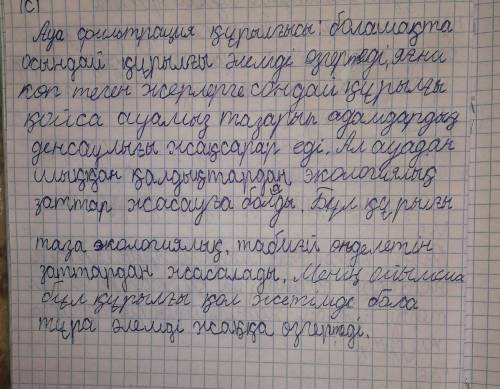 (c)
Ауа фильтрация құрылғысы: болашақта
осындай құрылғы әлемді өзгертеді, яғни
көп теген жерлерге сондай құрылғы
қойса ауамыз тазарып адамдардың
денсаулығы жақсарар еді. Ал ауадан
шыққан қалдықтардан экологиялық
заттар жасауға болады. Бұл құрығы
таза экологиялық, табиғи өнделетін
заттардан жасалады. Менің ойымша
бұл құрылғы қол жетімде бола
тұра әлемді жаққа өзгертеді.